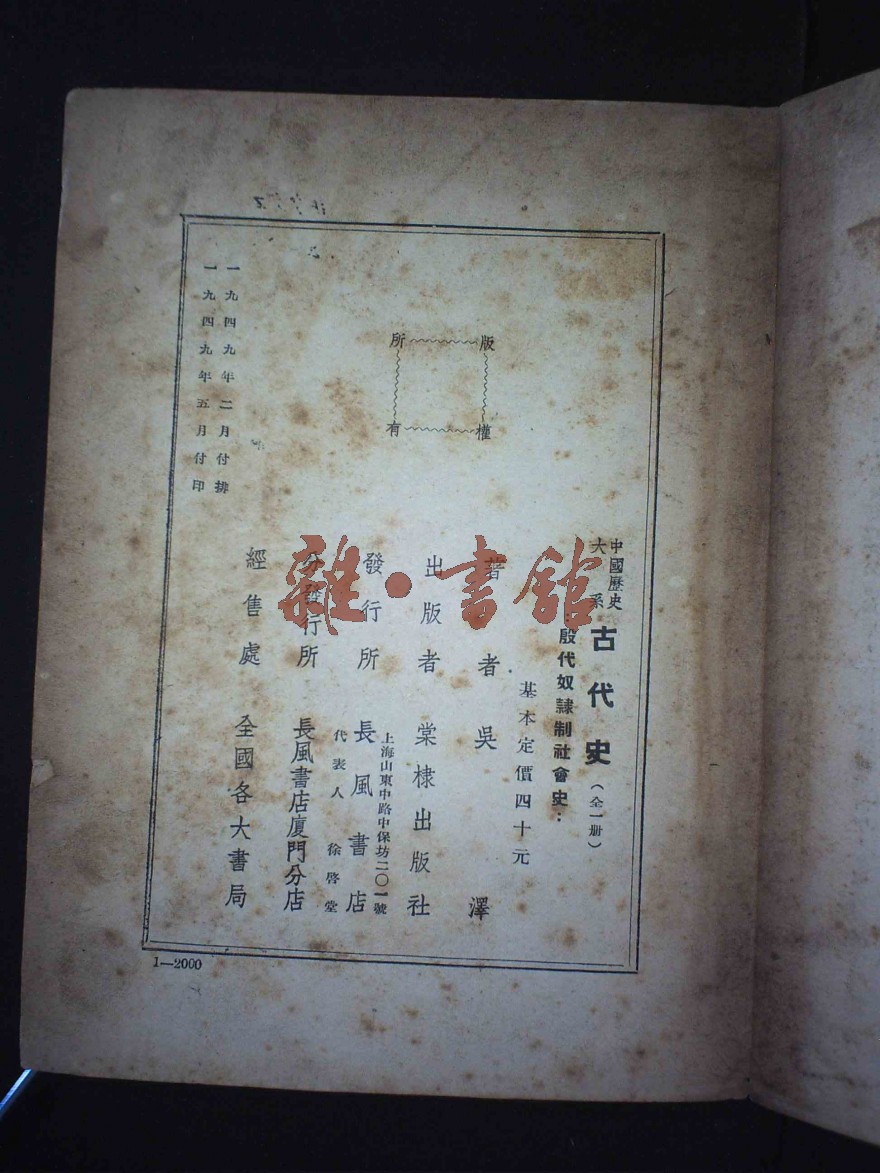 版權所有
中國歷史大系
古代史（全一册）
：殷代奴隸制社會史：
基本定價四十元
著者 吳澤
出版者 棠棣出版社
發行所 長風書店
上海山東中路中保坊二〇一號
代表人 徐啓堂
分發行所 長風書店廈門分店
經售處 全國各大書局
一九四九年二月付排
一九四九年五月付印
1—2000
雜·書館